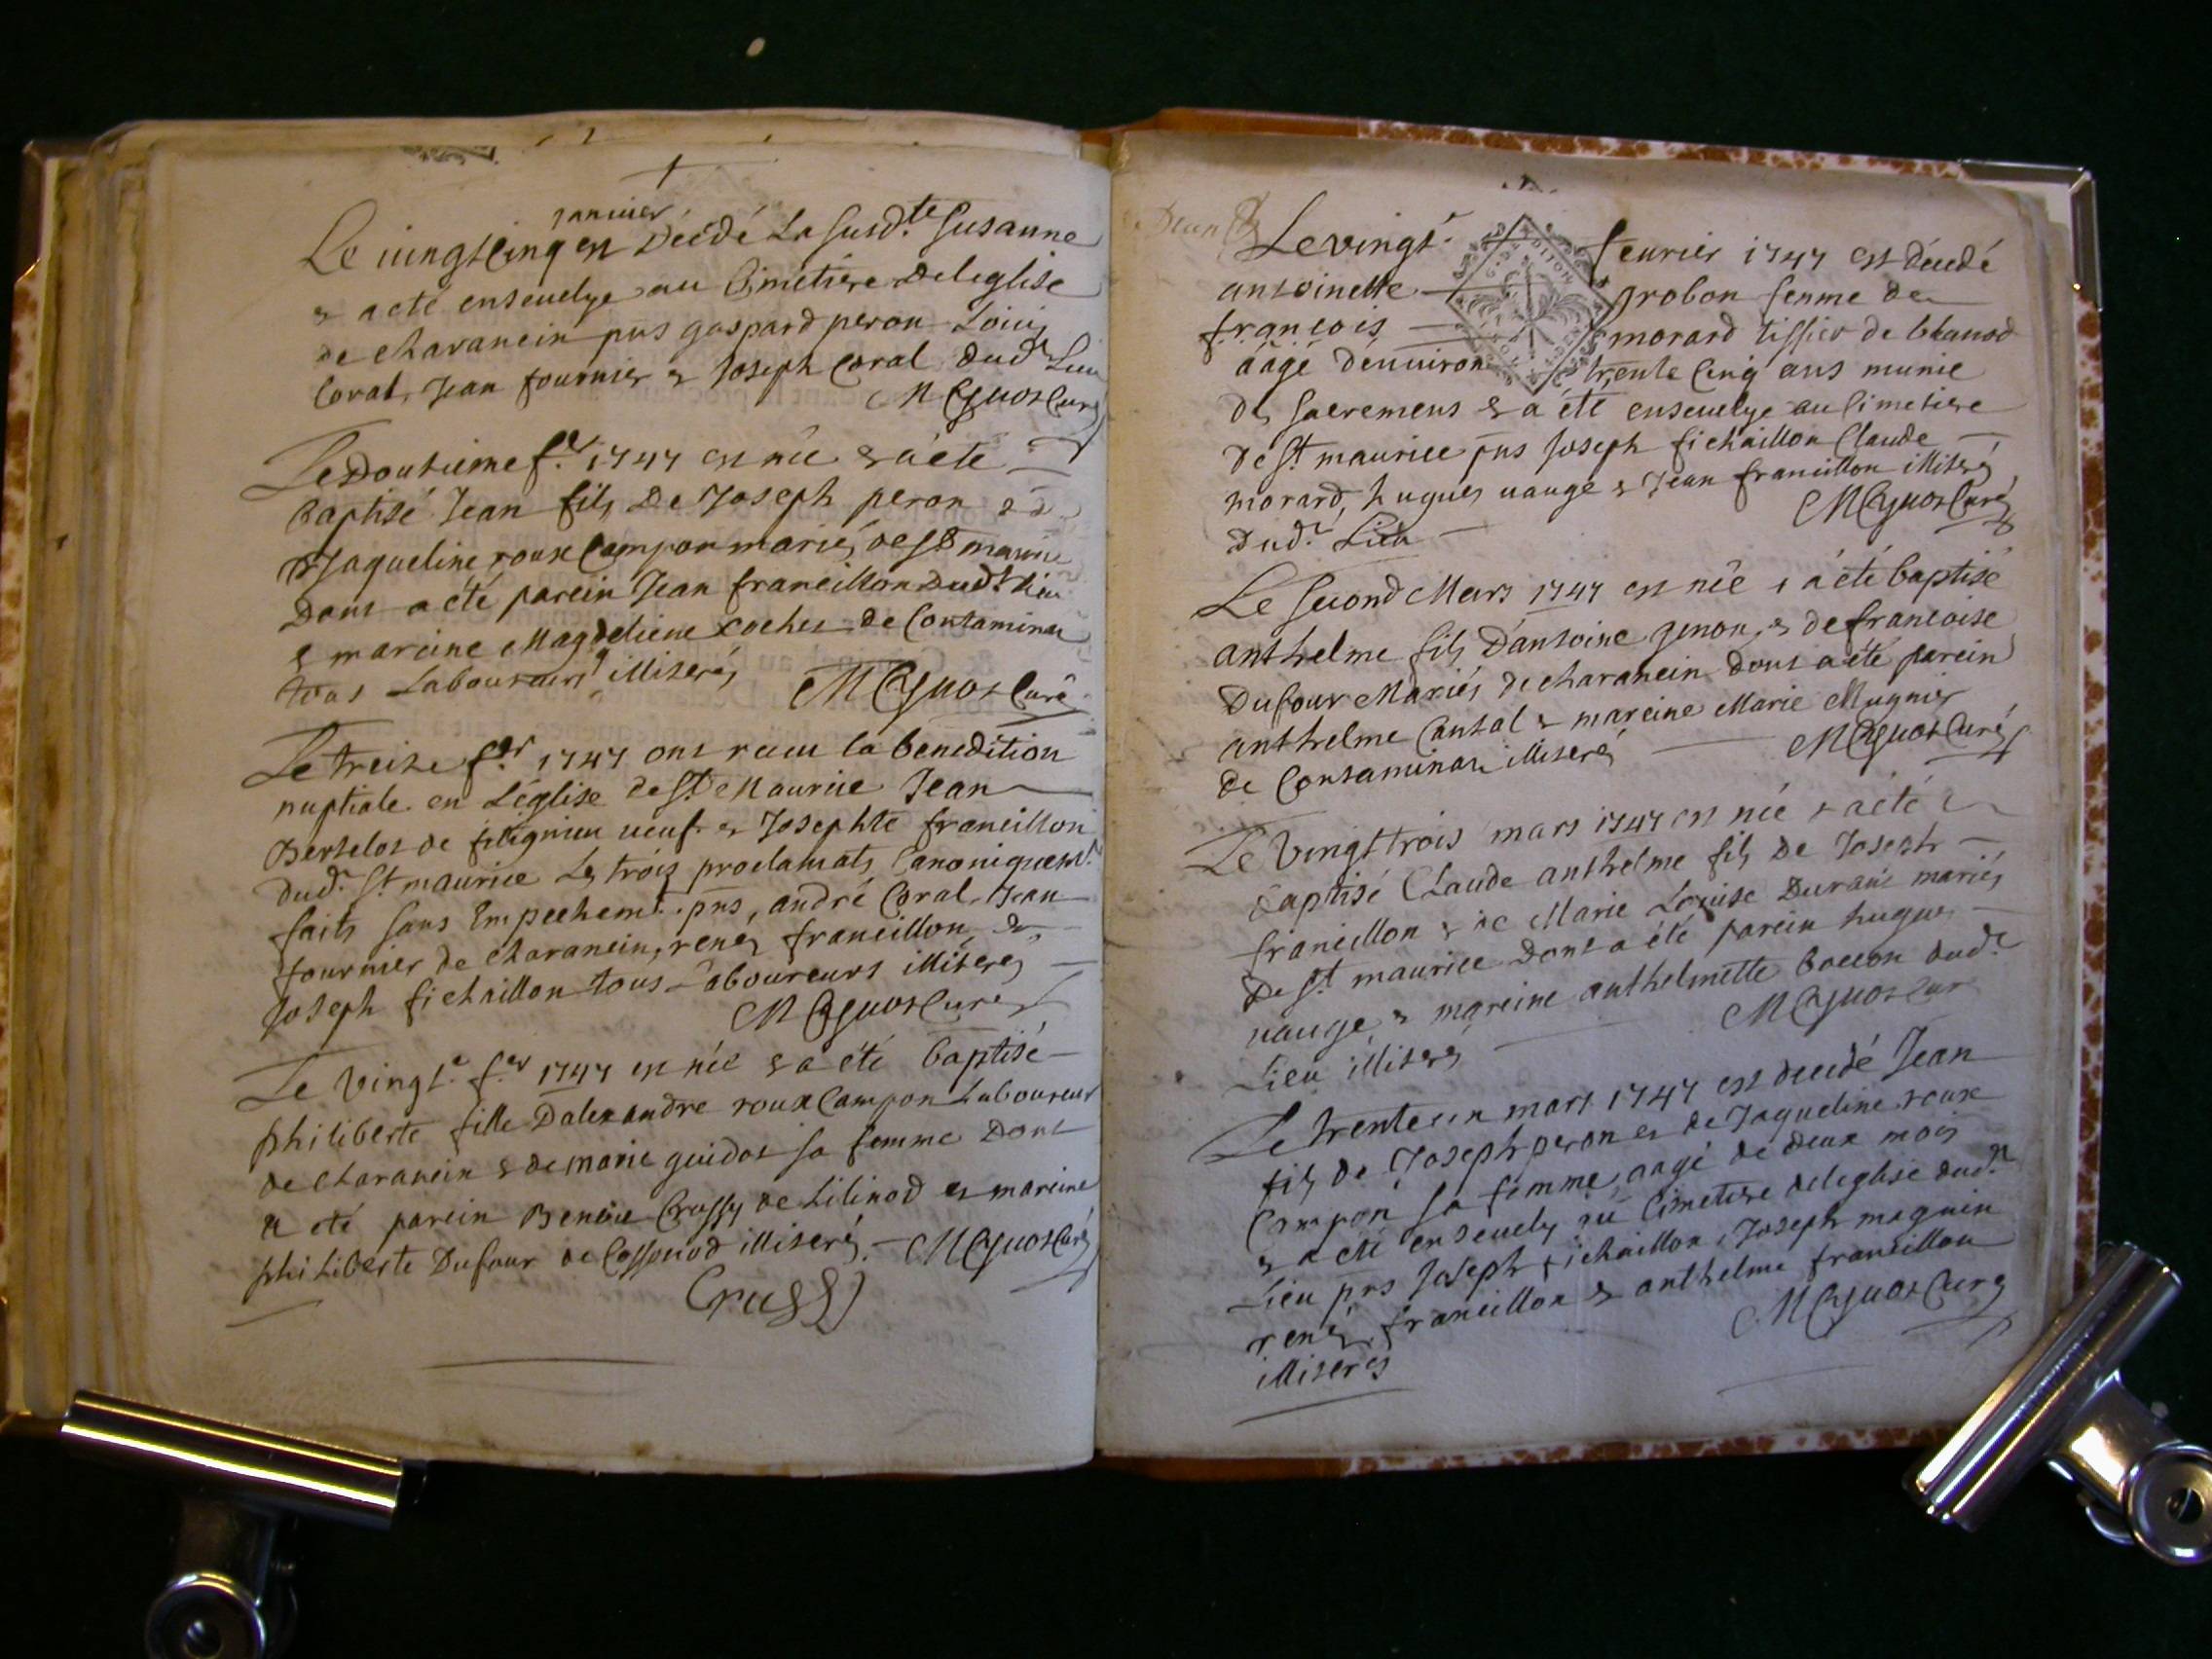 janvier
Le vingt cinq est décédé la susd.te Susanne
& a eté ensevelye au Cimetière de leglise
de charancin pns gaspard peron Loüis
Coral, Jean fournier & Joseph Coral dud.t Lieu
M Cyuot Curé
Le Douzieme f.er 1747 est née & a eté
baptisé Jean fils De Joseph peron &
Jaqueline roux Campon mariés de St maurice
Dont a été parein Jean francillon dud.t Lieu
& mareine Magdeleine cochet de Contamine
tous Laboureurs illiterés
M Cyuot Curé
Le treize f.er 1747 ont receu la benedition
nuptiale en L'église de St Maurice Jean
Bertelot de fitignieu veuf & Josephte francillon
dud.t St maurice Les trois proclamats Canoniquem.t
faits sans Empechem.t pns, andré Coral, Jean
fournier de charancin, rené francillon, &
Joseph fichaillon tous Laboureurs illiterés
M Cyuot Curé
Le Vingt.e f.er 1747 est née & a été baptisé
philiberte fille D'alexandre roux Campon Laboureur
de charancin & de marie guidot sa femme Dont
a eté parein Benoit Crussy de Lilinod & mareine
philiberte Dufour de Cossonod illiterés. M Cyuot Curé
Crussy
Le vingt fevrier 1747 est décedé
antoinette grobon femme de
françois morard tissier de
aagé d'environ trente cinq ans munie
des sacremens & a été ensevelye au Cimetiere
de St maurice pns Joseph fichaillon Claude
morard, hugues vauge & Jean francillon illiterés
dud.t Lieu M Cyuot Curé
Le second Mars 1747 est née & a été baptisé
anthelme fils D'antoine genon, & de francoise
Dufour Mariés de charancin dont a été parein
anthelme Cantal & mareine Marie Mugnier
de Contamine illiterés M Cyuot Curé
Le Vingt trois mars 1747 est née & a eté
baptisé Claude anthelme fils de Joseph
francillon & de Marie Louise Durand mariés
de St maurice Dont a été parein hugues
vauge & mareine anthelmette boccon dud.t
Lieu illiterés M Cyuot Curé
Le trente un mars 1747 est decedé Jean
fils de Joseph peron & de Jaqueline roux
Campon sa femme aagé de deux mois
& a eté ensevely au Cimetiere de leglise dud.t
Lieu pns Joseph fichaillon, Joseph magnin
rené francillon & anthelme francillon
illiterés M Cyuot Curé